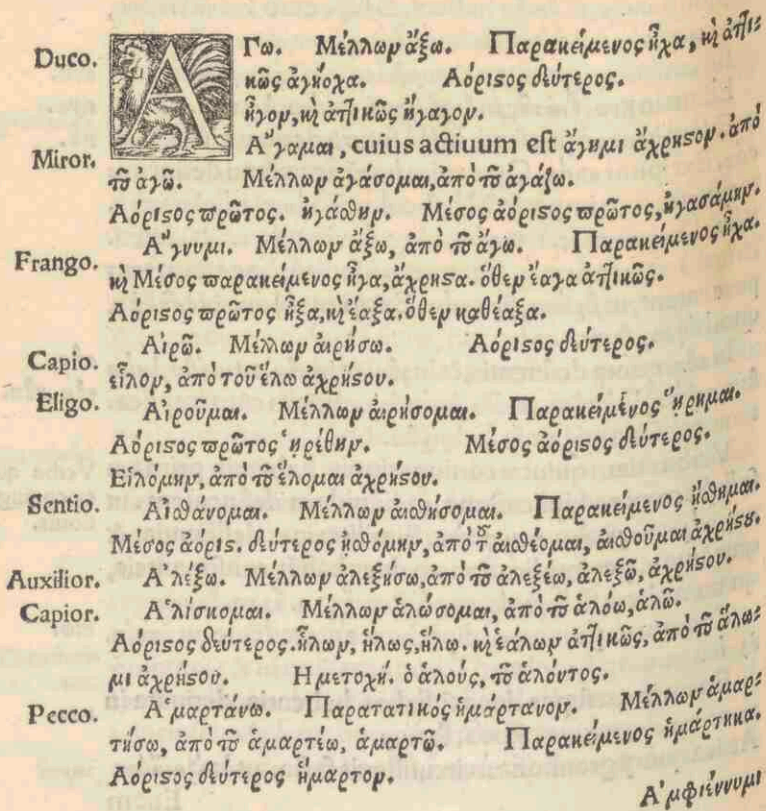 Duco. ΑΓω. Μέλλων ἄξω. Παρακείμενος ἦχα, κὶ ἀττι-
κῶς ἀγήοχα. Αόριστος δεύτερος.
ἦγον, κὶ ἀττικῶς ἤγαγον.
Miror. Α῎γαμαι, cuius actiuum est ἄγημι ἄχρηστον. ἀπό
τοῦ ἀγῶ. Μέλλων ἀγάσομαι, ἀπὸ τοῦ ἀγάζω.
Αόριστος πρῶτος. ἠγάσθην. Μέσος ἀόριστος πρῶτος, ἠγασάμην.
Frango. Α῎γνυμι. Μέλλων ἄξω, ἀπὸ τοῦ ἄγω. Παρακείμενος ἦχα.
κὶ Μέσος παρακείμενος ἦγα, ἄχρηστα. ὅθεν ἔαγα ἀττικῶς.
Αόριστος πρῶτος ἦξα, κὶ ἔαξα. ὅθεν καθέαξα.
Capio. Αἱρῶ. Μέλλων αἱρήσω. Αόριστος δεύτερος.
εἷλον, ἀπὸ τοῦ ἕλω ἀχρήστου.
Eligo. Αἱροῦμαι. Μέλλων αἱρήσομαι. Παρακείμενος ᾕρημαι.
Αόριστος πρῶτος ᾑρέθην. Μέσος ἀόριστος δεύτερος.
Εἱλόμην, ἀπὸ τοῦ ἕλομαι ἀχρήστου.
Sentio. Αἰσθάνομαι. Μέλλων αἰσθήσομαι. Παρακείμενος ἤσθημαι.
Μέσος ἀόρις. δεύτερος ἠσθόμην, ἀπὸ τοῦ αἰσθέομαι, αἰσθοῦμαι ἀχρήστου.
Auxilior. Α᾿λέξω. Μέλλων ἀλεξήσω, ἀπὸ τοῦ ἀλεξέω, ἀλεξῶ, ἀχρήστου.
Capior. Α῾λίσκομαι. Μέλλων ἁλώσομαι, ἀπὸ τοῦ ἁλόω, ἁλῶ.
Αόριστος δεύτερος. ἥλων, ἥλως, ἥλω. κὶ ἑάλων ἀττικῶς, ἀπὸ τοῦ ἅλω-
μι ἀχρήστου. Η μετοχή. ὁ ἁλούς, τοῦ ἁλόντος.
Pecco. Α῾μαρτάνω. Παρατατικός ἡμάρτανον. Μέλλων ἁμαρ-
τήσω, ἀπὸ τοῦ ἁμαρτέω, ἁμαρτῶ. Παρακείμενος ἡμάρτηκα.
Αόριστος δεύτερος ἥμαρτον.
Α᾿μφιέννυμι